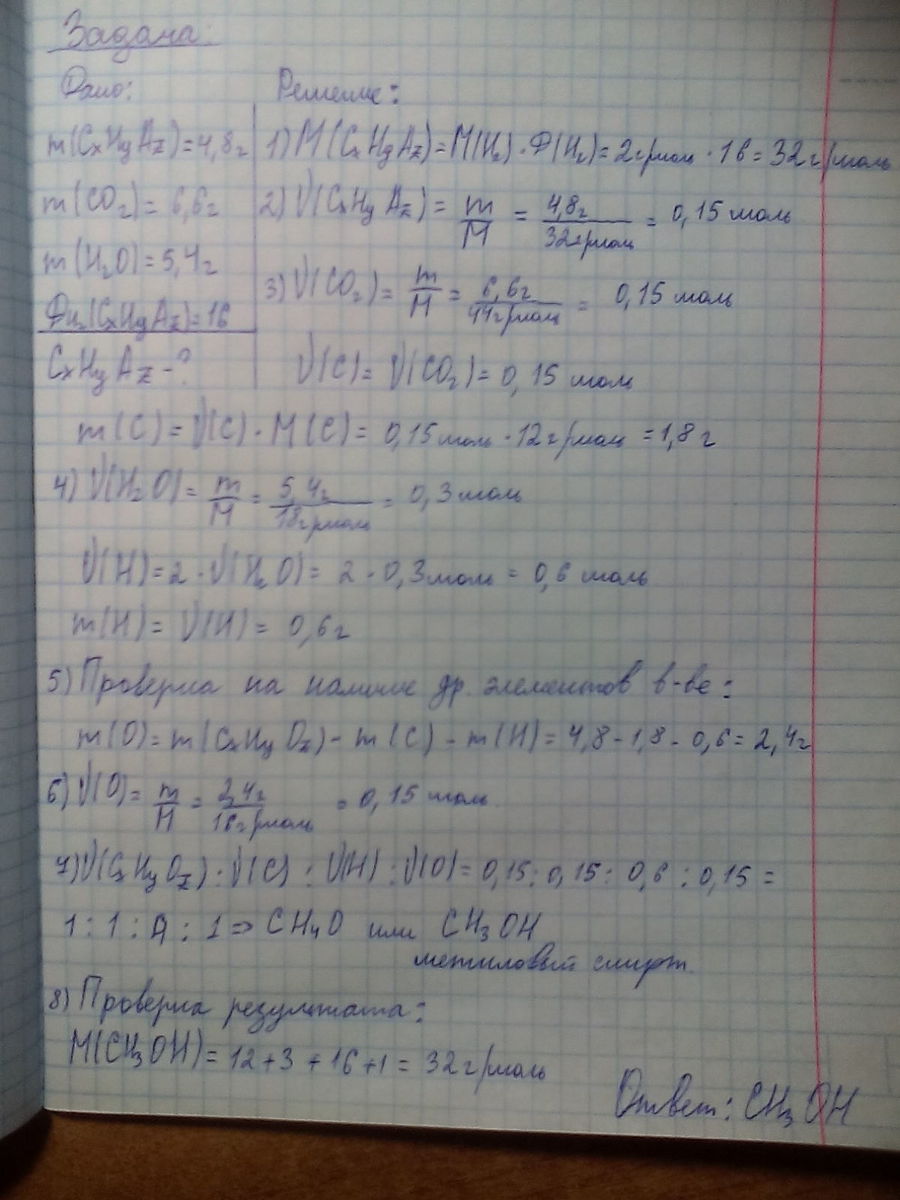 Задача:
Дано: Решение:
m(CxHyAz)=4,8г 1) M(CxHyAz)=M(H2)·Д(H2)=2г/моль·16=32г/моль
m(CO2)=6,6г 2) ν(CxHyAz)= m/M = 4,8г/32г/моль = 0,15 моль
m(H2O)=5,4г 3) ν(CO2)= m/M = 6,6г/44г/моль = 0,15 моль
Дн2(CxHyAz)=16
CxHyAz-? ν(C)=ν(CO2)=0,15 моль
m(C)=ν(C)·M(C)=0,15моль·12г/моль=1,8г
4) ν(H2O)= m/M = 5,4г/18г/моль = 0,3моль
ν(H)=2·ν(H2O)= 2·0,3моль=0,6 моль
m(H)=ν(H)= 0,6г
5) Проверка на наличие др. элементов в-ве:
m(O)=m(CxHyOz)-m(C)-m(H)=4,8-1,8-0,6=2,4г
6) ν(O)= m/M = 2,4г/16г/моль =0,15 моль
7) ν(CxHyOz):ν(C):ν(H):ν(O)=0,15:0,15:0,6:0,15=
1:1:4:1⇒CH4O или CH3OH
метиловый спирт
8) Проверка результата:
M(CH3OH)=12+3+16+1=32г/моль
Ответ: CH3OH